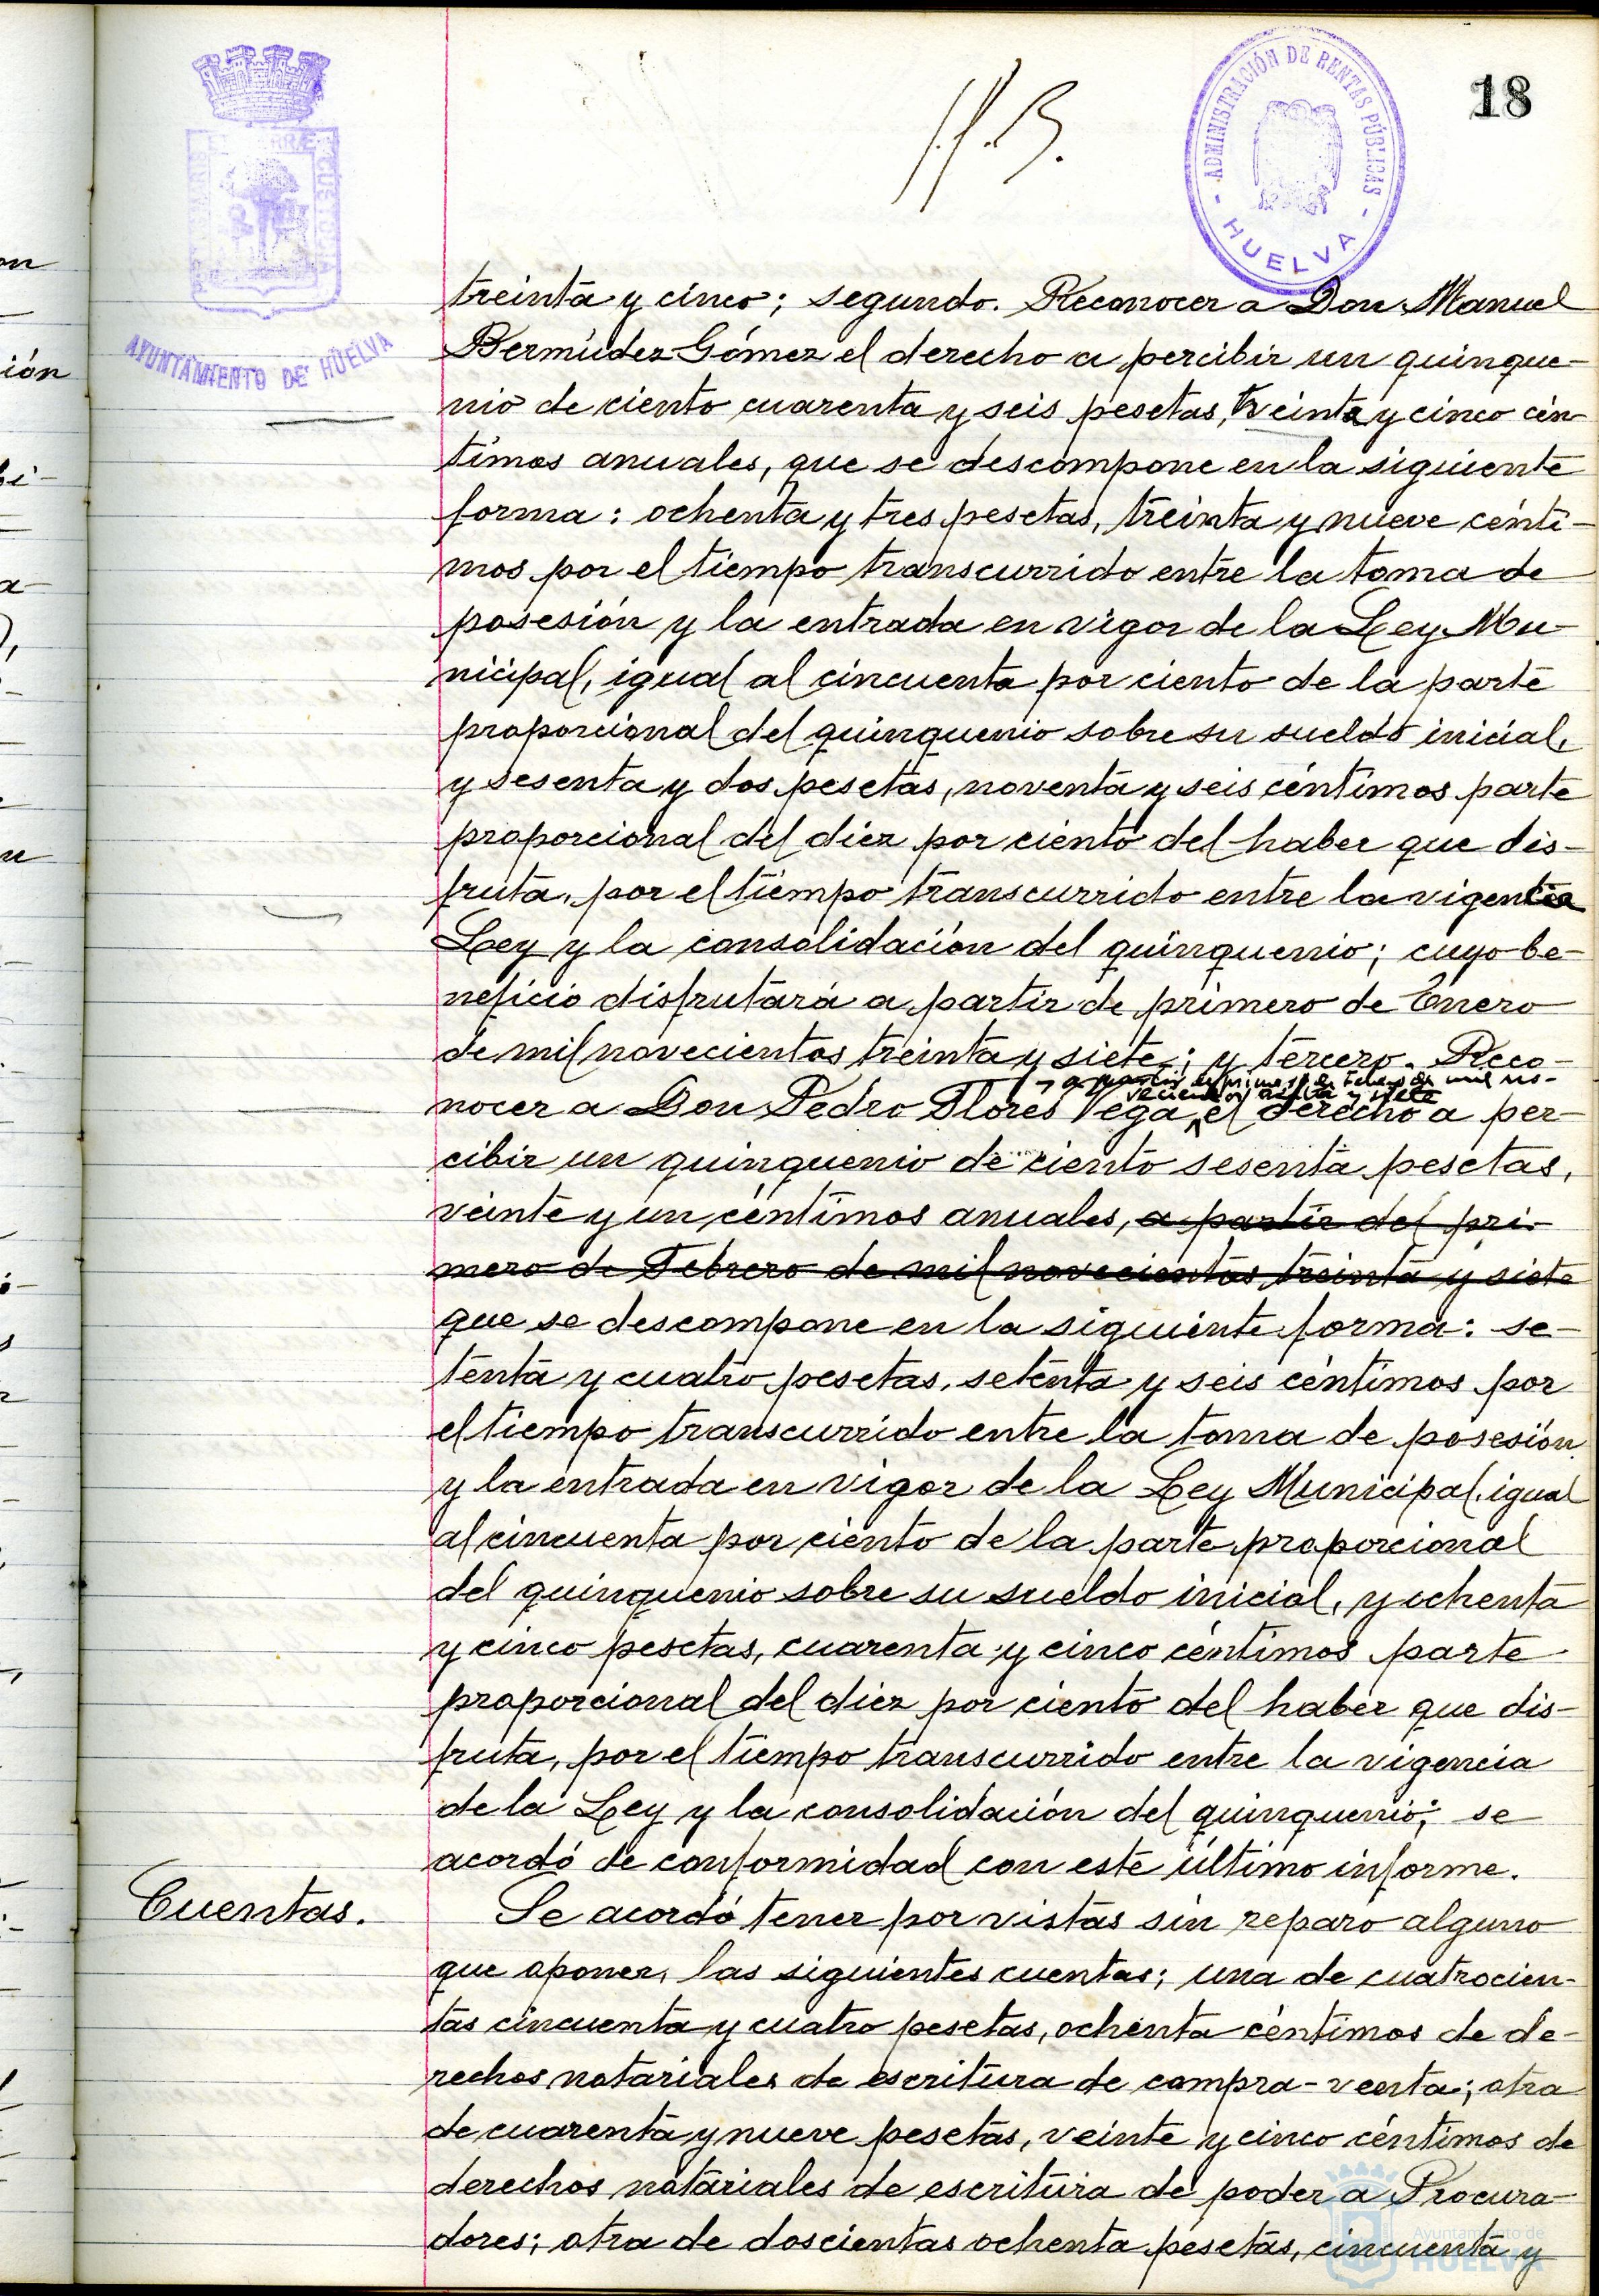 18
ADMINISTRACIÓN DE RENTAS PÚBLICAS
HUELVA
AYUNTAMIENTO DE HUELVA
treinta y cinco; segundo. Reconocer a Don Manuel
Bermúdez Gómez el derecho a percibir un quinque-
nio de ciento cuarenta y seis pesetas, treinta y cinco cén-
timos anuales, que se descompone en la siguiente
forma: ochenta y tres pesetas, treinta y nueve cénti-
mos por el tiempo transcurrido entre la toma de
posesión y la entrada en vigor de la Ley Mu-
nicipal, igual al cincuenta por ciento de la parte
proporcional del quinquenio sobre su sueldo inicial,
y sesenta y dos pesetas, noventa y seis céntimos parte
proporcional del diez por ciento del haber que dis-
fruta, por el tiempo transcurrido entre la vigente
Ley y la consolidación del quinquenio; cuyo be-
neficio disfrutará a partir de primero de Enero
de mil novecientos treinta y siete; y tercero. Reco-
a partir de primero de Febrero de mil no-
vecientos treinta y siete
nocer a Don Pedro Flores Vega, el derecho a per-
cibir un quinquenio de ciento sesenta pesetas,
veinte y un céntimos anuales, a partir del pri-
mero de Febrero de mil novecientos treinta y siete
que se descompone en la siguiente forma: se-
tenta y cuatro pesetas, setenta y seis céntimos por
el tiempo transcurrido entre la toma de posesión
y la entrada en vigor de la Ley Municipal, igual
al cincuenta por ciento de la parte proporcional
del quinquenio sobre su sueldo inicial, y ochenta
y cinco pesetas, cuarenta y cinco céntimos parte
proporcional del diez por ciento del haber que dis-
fruta, por el tiempo transcurrido entre la vigencia
de la Ley y la consolidación del quinquenio; se
acordó de conformidad con este último informe.
Cuentas.
Se acordó tener por vistas sin reparo alguno
que oponer, las siguientes cuentas; una de cuatrocien-
tas cincuenta y cuatro pesetas, ochenta céntimos de de-
rechos notariales de escritura de compra-venta; otra
de cuarenta y nueve pesetas, veinte y cinco céntimos de
derechos notariales de escritura de poder a Procura-
dores; otra de doscientas ochenta pesetas, cincuenta y
Ayuntamiento de
HUELVA